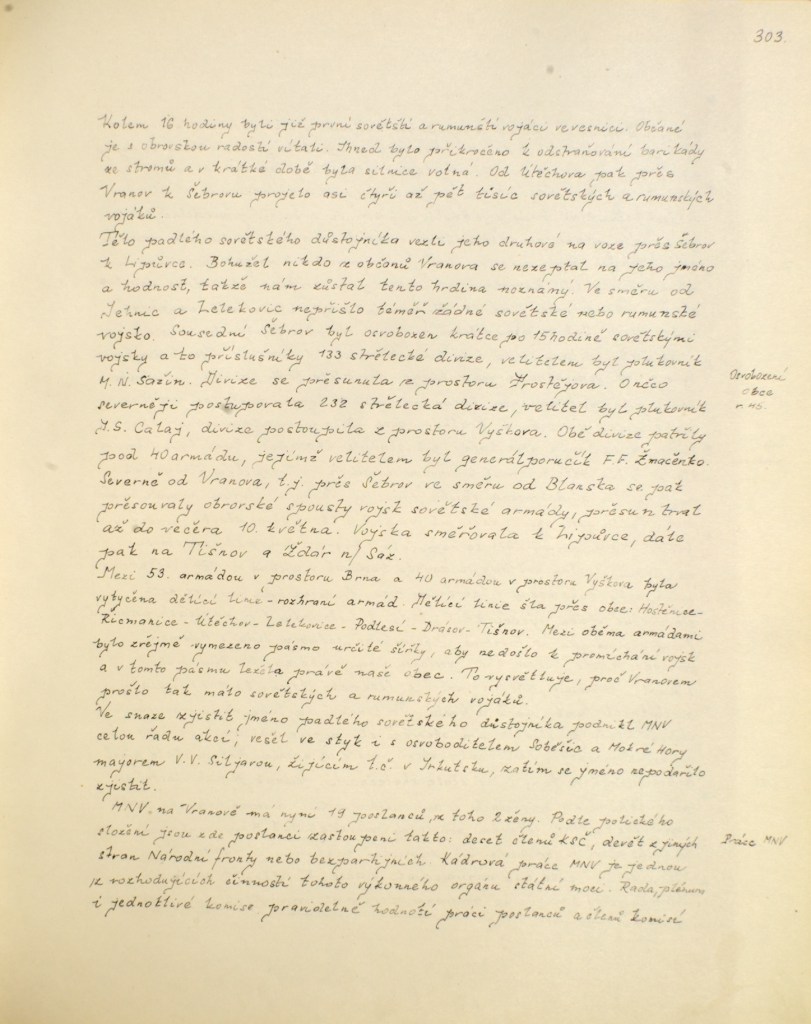 303.
Kolem 16 hodiny byli již první sovětští a rumunští vojáci ve vesnici. Občané
je s obrovskou radostí vítali. Ihned bylo přikročeno k odstraňování barikády
ze stromů a v krátké době byla silnice volná. Od Útěchova pak přes
Vranov k Šebrovu projelo asi čtyři až pět tisíc sovětských a rumunských
vojáků.
Tělo padlého sovětského důstojníka vezli jeho druhové na voze přes Šebrov
k Lipůvce. Bohužel nikdo z občanů Vranova se nezeptal na jeho jméno
a hodnost, takže nám zůstal tento hrdina neznámý. Ve směru od
Jehnic a Lelekovic nepřišlo téměř žádné sovětské nebo rumunské
vojsko. Sousední Šebrov byl osvobozen krátce po 15 hodině sovětskými
vojsky a to příslušníky 133 střelecké divize, velitelem byl plukovník
M. N. Sažin. Divize se přesunula z prostoru Prostějova. O něco
Osvobození
obce
r. 45.
severněji postupovala 232 střelecká divize, velitel byl plukovník
I. S. Calaj, divize postoupila z prostoru Vyškova. Obě divize patřily
pod 40 armádu, jejímž velitelem byl generálporučík F. F. Žmačenko.
Severně od Vranova, t.j. přes Šebrov ve směru od Blanska se pak
přesouvaly obrovské spousty vojsk sovětské armády, přesun trval
až do večera 10. května. Vojska směřovala k Lipůvce, dále
pak na Tišnov a Ždár n/ Sáz.
Mezi 53. armádou v prostoru Brna a 40 armádou v prostoru Vyškova byla
vytyčena dělící linie - rozhraní armád. Dělící linie šla přes obce: Hostěnice -
Řícmanice - Útěchov - Lelekovice - Podlesí - Drásov - Tišnov. Mezi oběma armádami
bylo zřejmě vymezeno pásmo určité šířky, aby nedošlo k promíchání vojsk
a v tomto pásmu ležela právě naše obec. To vysvětluje, proč Vranovem
prošlo tak málo sovětských a rumunských vojáků.
Ve snaze zjistit jméno padlého sovětského důstojníka podnikl MNV
celou řadu akcí, vešel ve styk i s osvoboditelem Soběšic a Mokré Hory
mayorem V. V. Siljavou, žijícím t.č. v Irkutsku, zatím se jméno nepodařilo
zjistit.
MNV na Vranově má nyní 19 poslanců, z toho 2 ženy. Podle politického
složení jsou zde poslanci zastoupeni takto: deset členů KSČ, devět z jiných
Práce MNV
stran Národní fronty nebo bezpartijních. Kádrová práce MNV je jednou
z rozhodujících činností tohoto výkonného orgánu státní moci. Rada, plénum
i jednotlivé komise pravidelně hodnotí práci poslanců a členů komisí